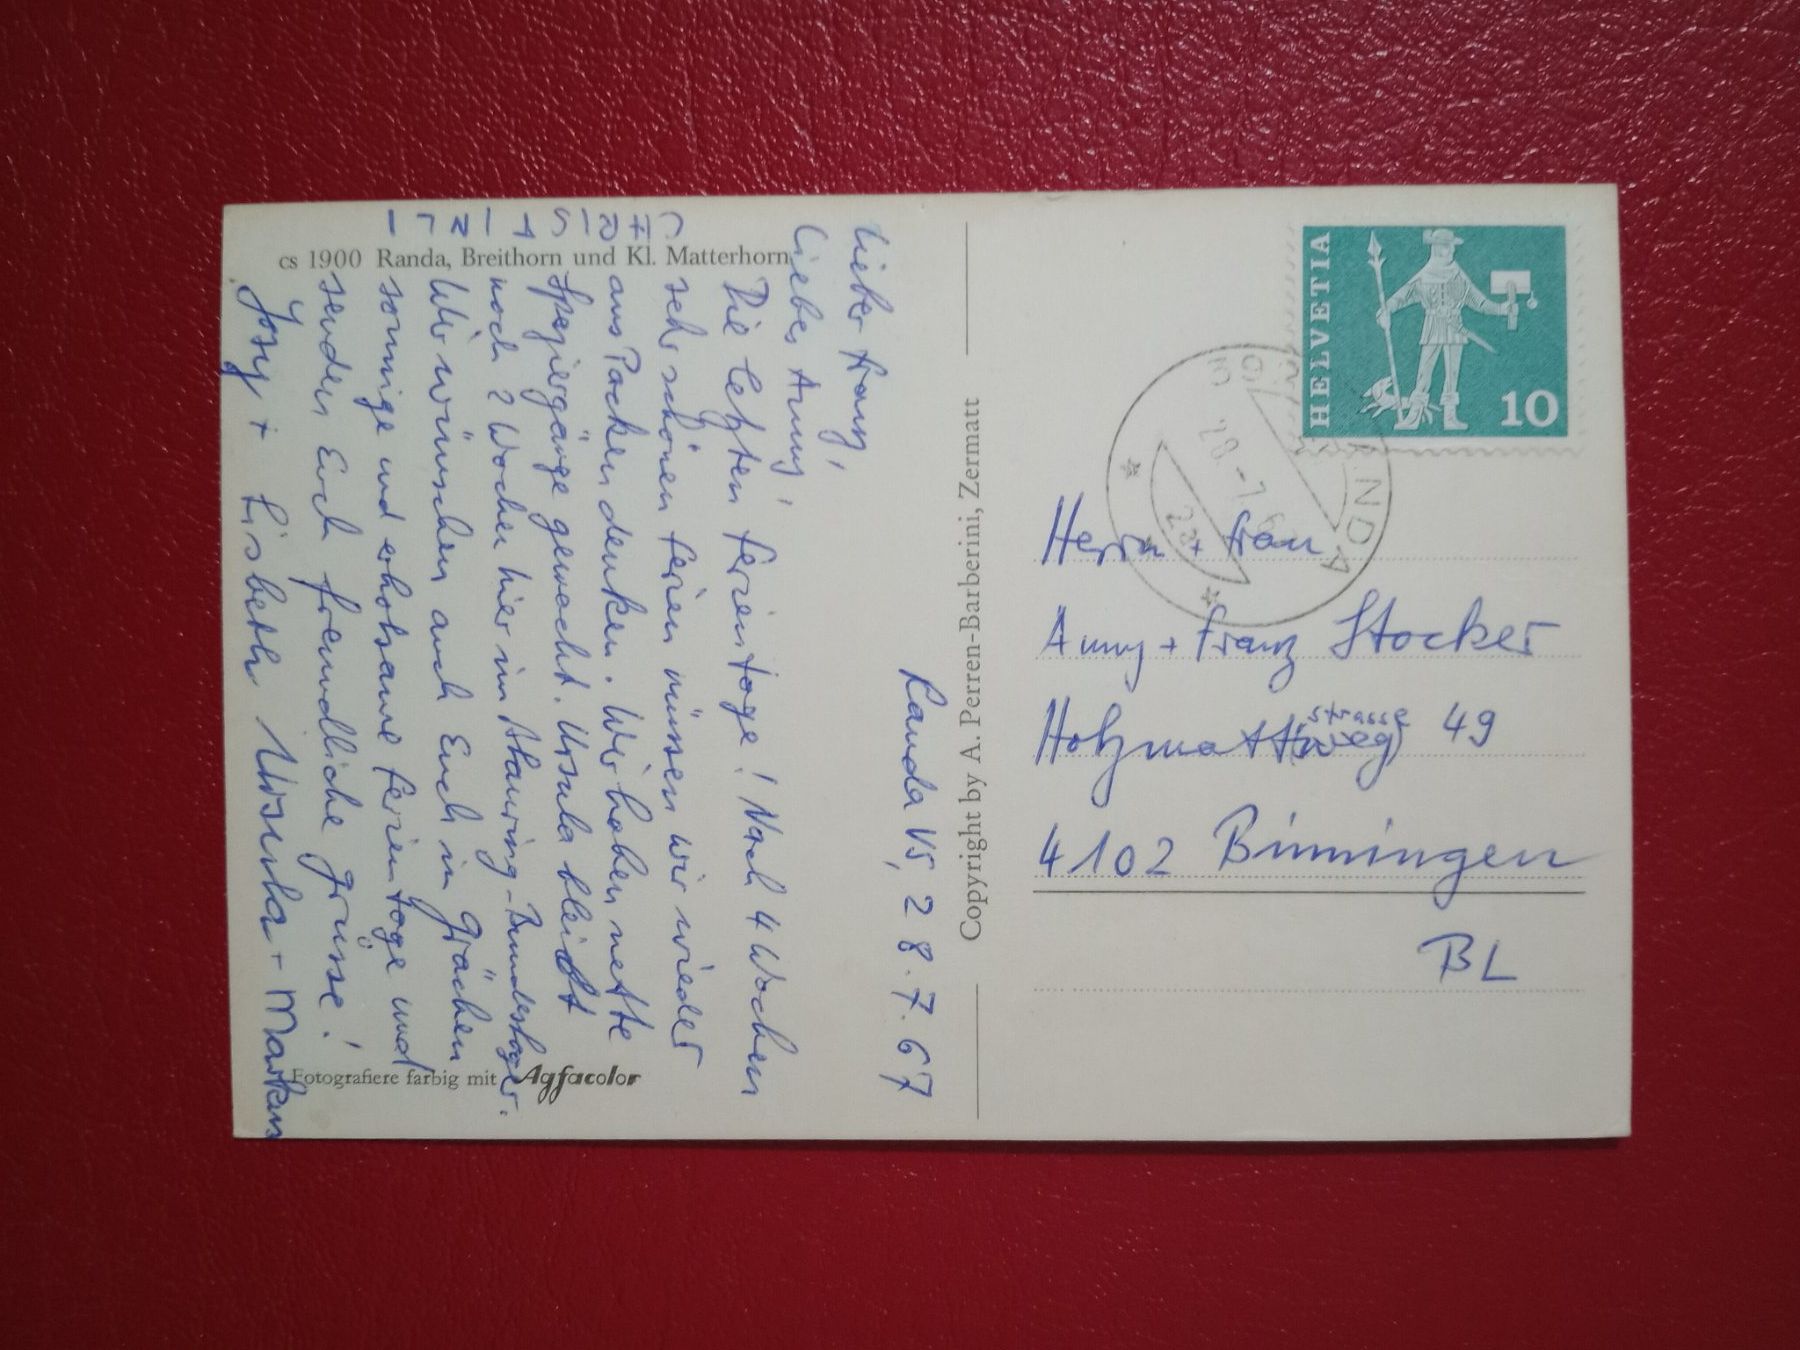 cs 1900 Randa, Breithorn und Kl. Matterhorn
Randa VS, 28.7.67
Lieber Franz,
Liebe Anny,
Die letzten Ferientage! Nach 4 Wochen
sehr schönen Ferien müssen wir wieder
ans Packen denken. Wir haben nette
Spaziergänge gemacht. Ursula bleibt
noch 2 Wochen hier im Blauring-Bundeslager.
Wir wünschen auch Euch in Grächen
sonnige und erholsame Ferientage und
senden Euch freundliche Grüsse!
Josy + Lisbeth Ursula + Markus
CHRISTINLI
Fotografiere farbig mit Agfacolor
Copyright by A. Perren-Barberini, Zermatt
HELVETIA
10
RANDA
Herrn + Frau
Anny + Franz Stocker
Holzmattstrasse 49
4102 Binningen
BL